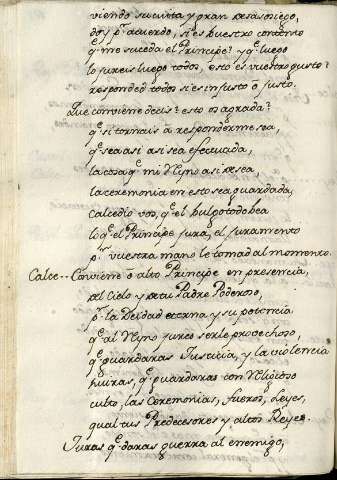 viendo su cuita y gran desasosiego,
doy pr. acuerdo, si es vuestro contento
qe. me suceda el Principe? y qe. luego
lo jureis luego todos, esto es vuestro gusto?
responded todos si es injusto ó justo.
Que conviene decis? esto os agrada?
qe. si tornais a responderme sea,
qe. sea asi asi sea efectuada,
la cosa qe. mi Reyno asi desea,
la ceremonia en esto sea guardada,
Calcedio vos, qe. el bulgo todo bea
lo qe. el Principe jura, el juramento
pr. vuestra mano le tomad al momento.
Calce-- Conviene ó alto Principe en presencia,
del Cielo y de tu Padre Poderoso,
pr. la Deidad eterna y su potencia
qe. al Reyno jures serle provechoso,
qe. guardaras Justicia, y la violencia
huiras, qe. guardaras con Religioso
culto, las Ceremonias, fueros, Leyes,
qual tus Predecesores y altos Reyes.
Juras qe. daras guerra al enemigo,